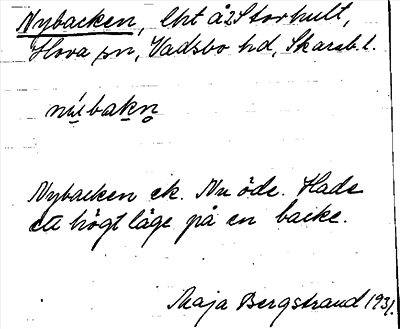 Nybacken, lht å Storhult,
Hova sn, Vadsbo hd, Skarab. l.
Nybacken ck. Nu öde. Hade
ett högt läge på en backe.
Maja Bergstrand 1931.